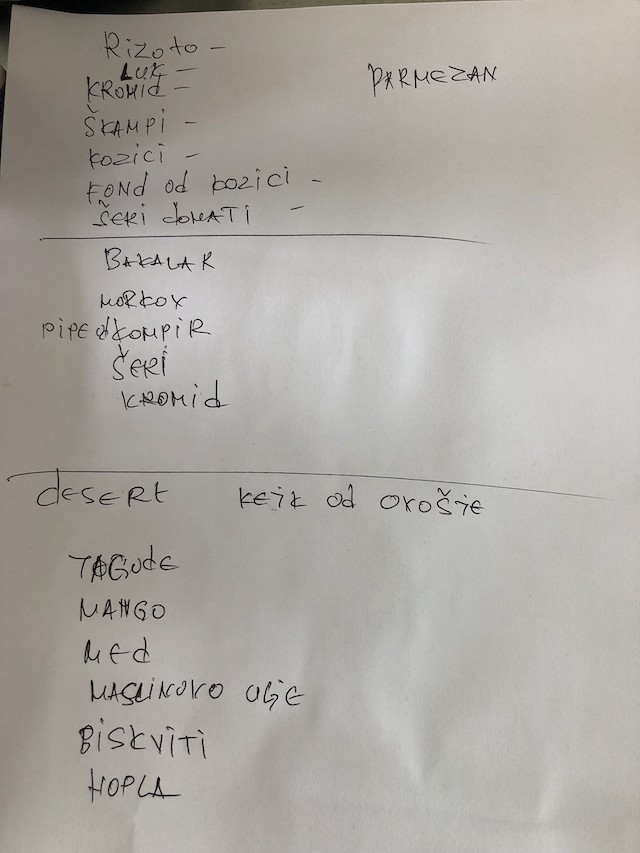 Rizoto -
LUK -
KROMID -
ŠKAMPI -
KOZICI -
FOND od KOZICI -
ŠERI DOMATI -
PARMEZAN
BAKALAR
MORKOV
PIRE od KOMPIR
ŠERI
KROMID
DESERT KEJK od OVOŠJE
JAGODE
MANGO
MED
MASLINOVO ULJE
BISKVITI
HOPLA